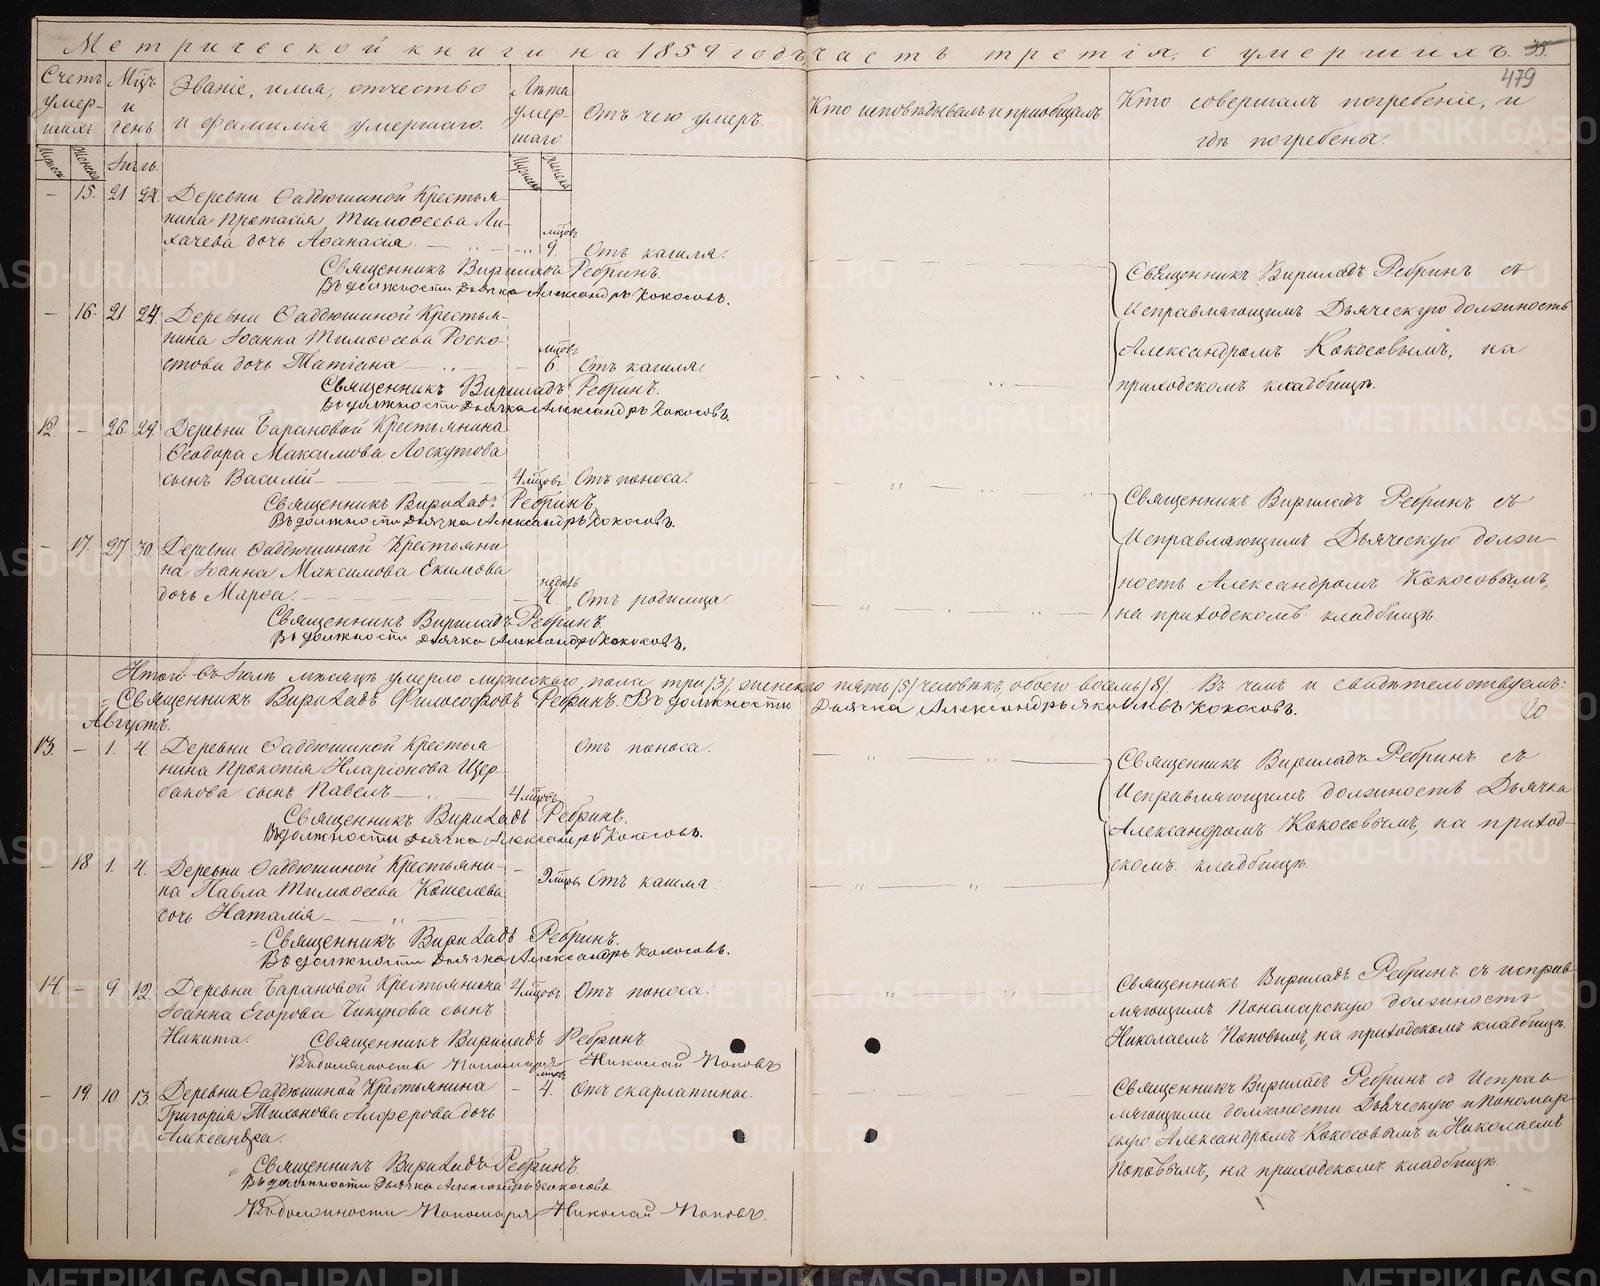 Метрической книги на 1859 годъ часть третія, о умершихъ. 35.
479
Счетъ умер-шихъ.
Мцъ и день
Званіе, имя, отчество и фамилія умершаго.
Лѣта умер-шаго
Отъ чего умеръ.
Кто исповѣдывалъ и пріобщалъ
Кто совершалъ погребеніе, и гдѣ погребены.
Мужеска Женска
Іюль.
Мужеска Женска
— 15. 21 24. Деревни Ѳаддюшиной Крестья-
нина Протасія Тимоѳеева Ли-
хачева дочь Аѳанасія. мцовъ 9. Отъ кашля.
Священникъ Вириладъ Ребринъ.
Въ должности Дьячка Александръ Кокосовъ.
Священникъ Вириладъ Ребринъ съ
Исправляющимъ Дьяческую должность
Александромъ Кокосовымъ, на
приходскомъ кладбищѣ.
— 16. 21 24. Деревни Ѳаддюшиной Крестья-
нина Іоанна Тимоѳеева Роско-
стова дочь Татіана мцовъ 6. Отъ кашля.
Священникъ Вириладъ Ребринъ.
Въ должности Дьячка Александръ Кокосовъ.
12. — 26. 29. Деревни Барановой Крестьянина
Ѳеодора Максимова Лоскутова
сынъ Василій 4 мцовъ Отъ поноса.
Священникъ Вириладъ Ребринъ.
Въ должности Дьячка Александръ Кокосовъ.
Священникъ Вириладъ Ребринъ съ
Исправляющимъ Дьяческую долж-
ность Александромъ Кокосовымъ,
на приходскомъ кладбищѣ
— 17. 27. 30. Деревни Ѳаддюшиной Крестьяни-
на Іоанна Максимова Екимова
дочь Марѳа. недѣль Отъ родимца.
Священникъ Вириладъ Ребринъ.
Въ должности Дьячка Александръ Кокосовъ.
Итого въ Іюлѣ мѣсяцѣ умерло мужескаго пола три /3/, женскаго пять /5/ человѣкъ, обоего восемь /8/. Въ чемъ и свидѣтельствуемъ:
Священникъ Вириладъ Философовъ Ребринъ. Въ должности Дьячка Александръ Яковлевъ Кокосовъ.
Августъ.
13. — 1. 4. Деревни Ѳаддюшиной Крестья-
нина Прокопія Иларіонова Щер-
бакова сынъ Павелъ 4 мцовъ Отъ поноса.
Священникъ Вириладъ Ребринъ.
Въ должности Дьячка Александръ Кокосовъ.
Священникъ Вириладъ Ребринъ съ
Исправляющимъ должность Дьячка
Александромъ Кокосовымъ, на приход-
скомъ кладбищѣ.
— 18. 1. 4. Деревни Ѳаддюшиной Крестьяни-
на Павла Тимоѳеева Кошелева
дочь Наталія 9 мцовъ Отъ кашля.
Священникъ Вириладъ Ребринъ.
Въ должности Дьячка Александръ Кокосовъ.
14. — 9. 12. Деревни Барановой Крестьянина 4 мцовъ Отъ поноса.
Іоанна Егорова Чикунова сынъ
Никита. Священникъ Вириладъ Ребринъ
В должности Пономаря Николай Поповъ
Священникъ Вириладъ Ребринъ съ исправ-
ляющимъ Пономарскую должность
Николаемъ Поповымъ, на приходскомъ кладбищѣ.
— 19. 10 13. Деревни Ѳаддюшиной Крестьянина — мцовъ 4. Отъ скарлатины.
Григорія Тихонова Алферова дочь
Александра.
Священникъ Вириладъ Ребринъ.
Въ должности Дьячка Александръ Кокосовъ
В должности Пономаря Николай Поповъ.
Священникъ Вириладъ Ребринъ съ Исправ-
ляющими должности Дьяческую и Пономар-
скую Александромъ Кокосовымъ и Николаемъ
Поповымъ, на приходскомъ кладбищѣ.
METRIKI.GASO-URAL.RU